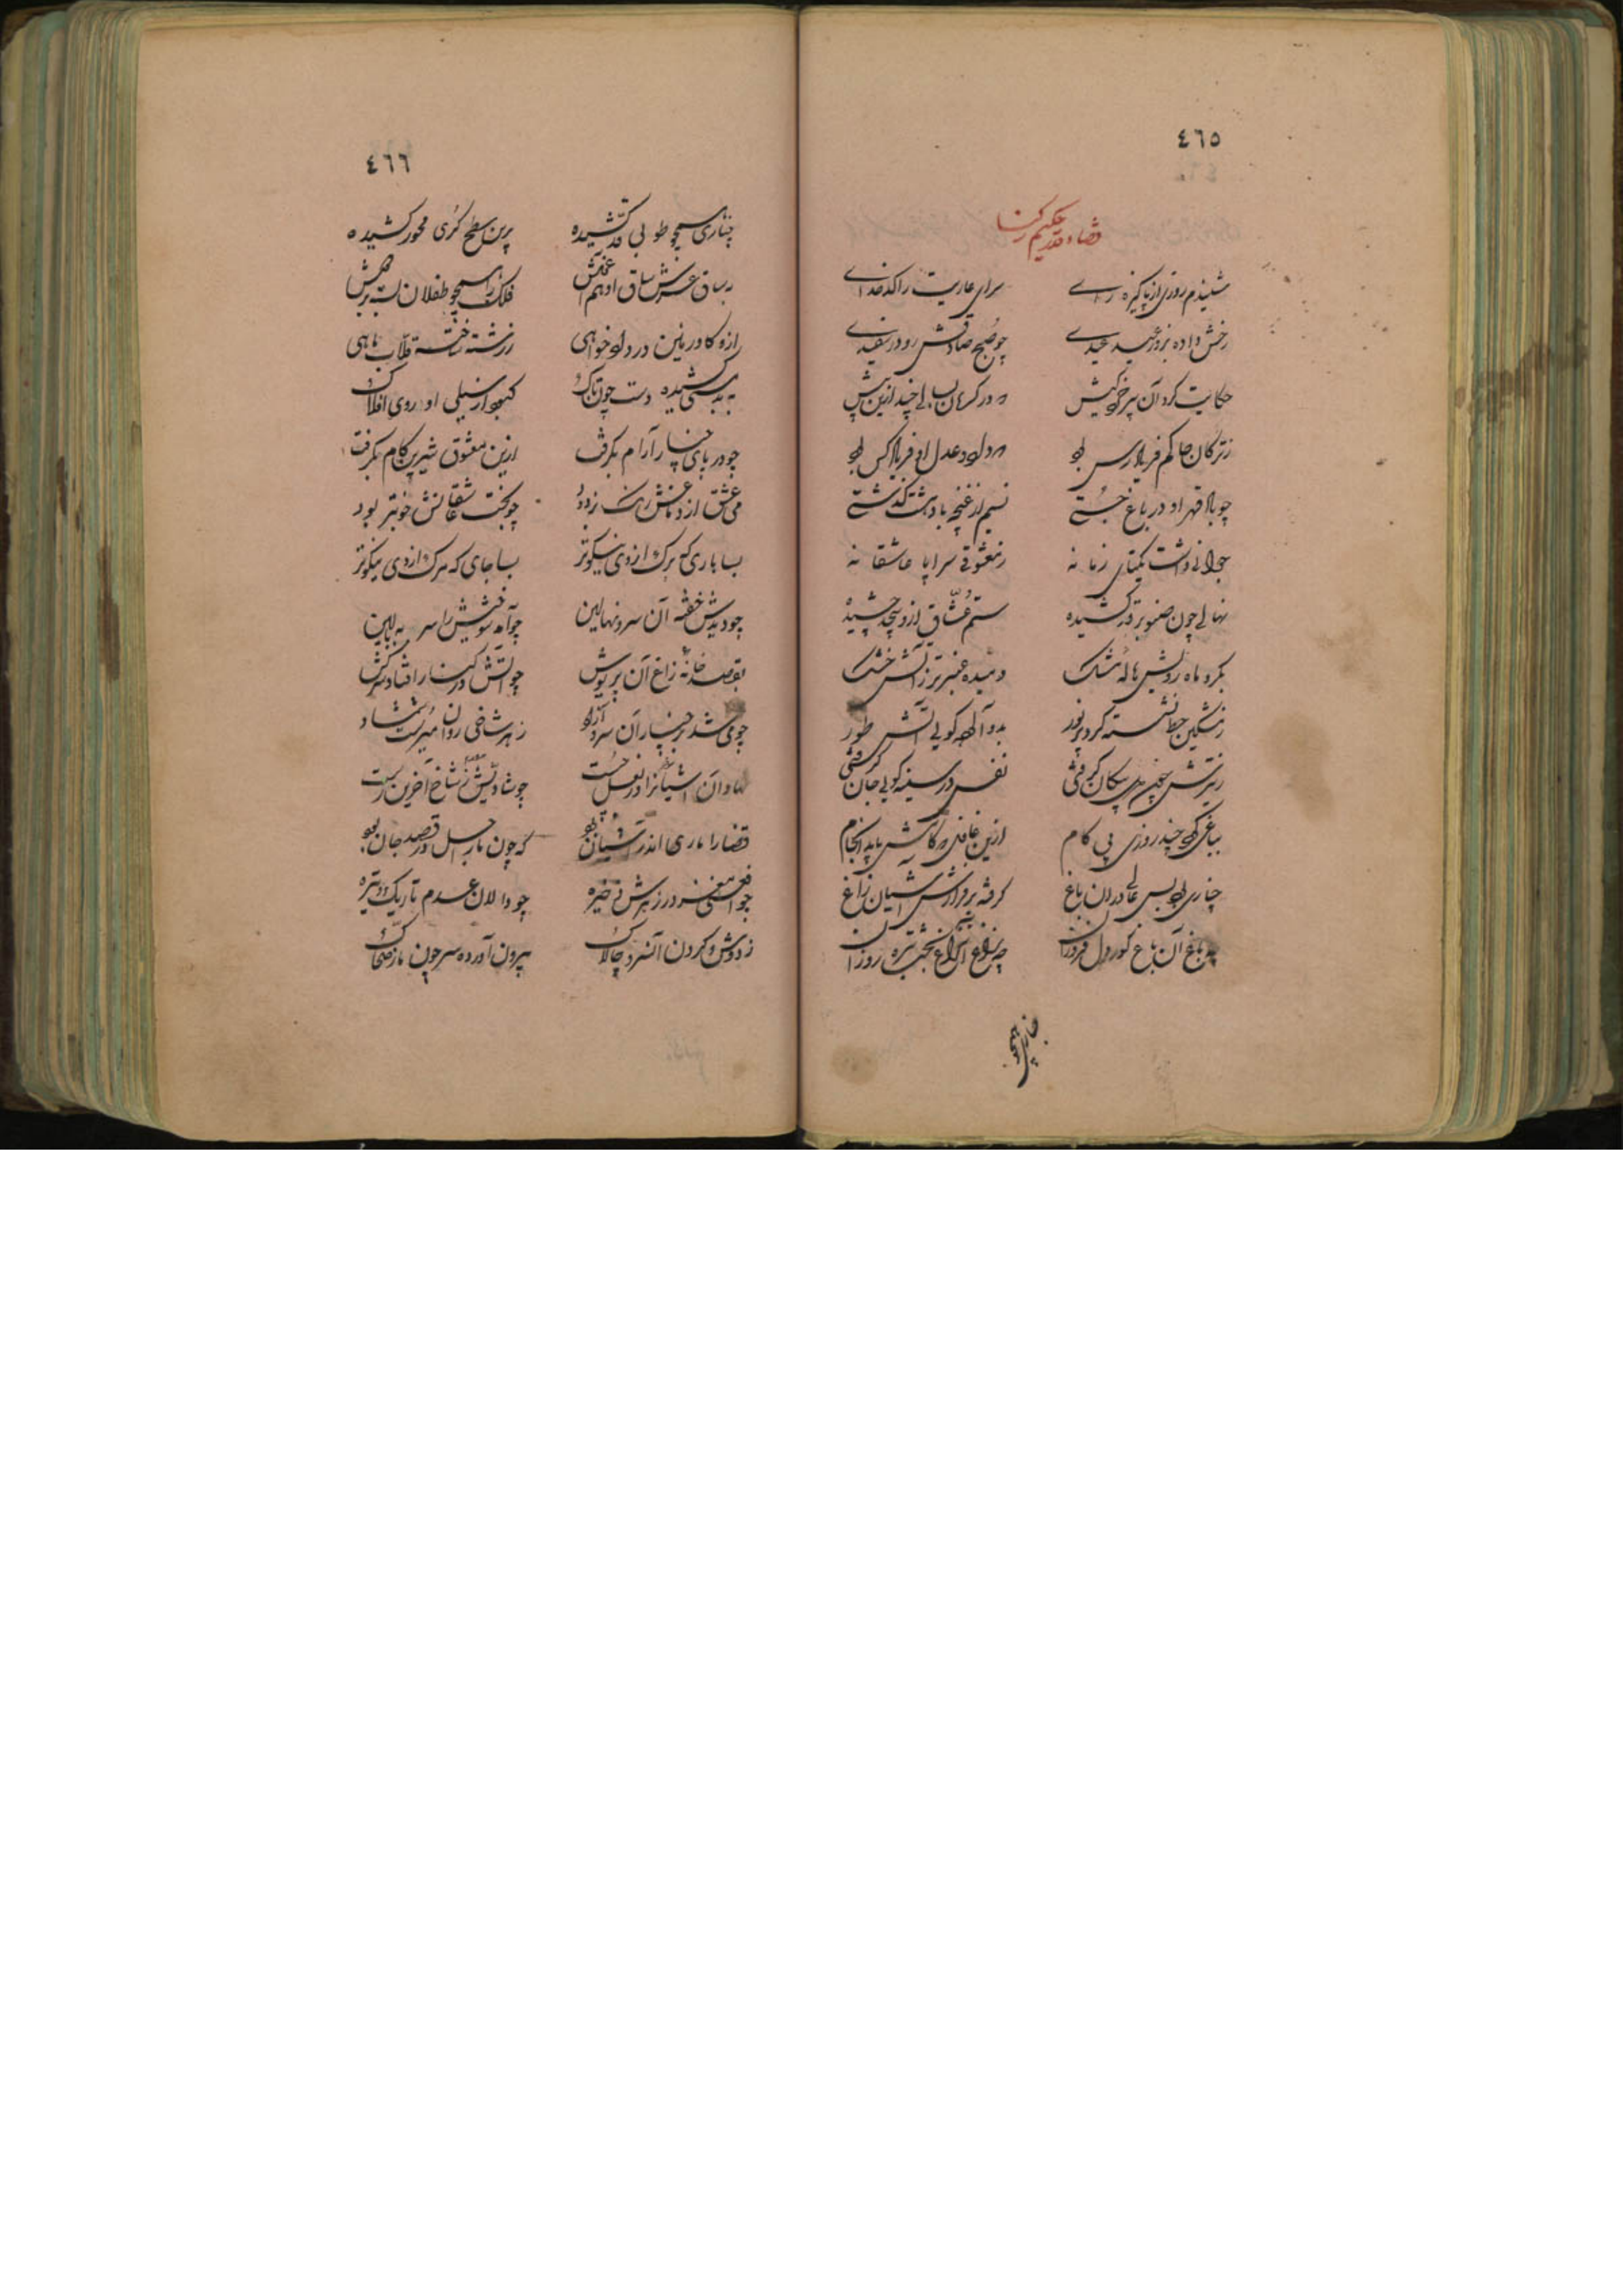 ٤٦٥
قضا و قدر حکیم رکنا
شنیدم روزی از پاکیزه رای سرای عاریت را کدخدای
رخش داده بروز عید عیدی چو صبح صادقش رو در سفیدی
حکایت کرد آن پیر خرد کیش که در کرمان بسالی چند ازین پیش
ز ترکان حاکم فریادرس بود که در دور عدل او فریاد کس بود
چو باد قهر او در باغ جستی نسیم از غنچه با دهشت گذشتی
جوانی داشت یکتای زمانه ز معشوقی سراپا عاشقانه
نهالی چون صنوبر قد کشیده ستم عشاق ازو بیحد چشیده
بگرد ماه رویش هاله مشک دمیده عنبر تر ز آتش خشک
ز مشکین خط نشسته گرد بر نور بدود آلوده گویی آتش طور
ز تیرش چون بدی پیکان گرفتی نفس در سینه گویی جان گرفتی
بباغی بود چند روزی پی کام ازین غافل که کارش باید انجام
چناری بود بس عالی در آن باغ گرفته بر فرازش آشیان زاغ
چه باغ آن باغ کور دل فروزان چه زاغ آن زاغ بخت تیره روزان
چناری همچو
٤٦٦
چناری همچو طوبی قد کشیده برین سطح کری محور کشیده
بساق عرش ساق او هم آغوش فلک را همچو طفلان بسته بر دوش
ازو گاو زمین در داد خواهی ز ریشه ساخته قلاب ماهی
به بدمستی کشیده دست چون تاک کبود از سیلی او روی افلاک
چو در پای چنار آرام بگرفت ازین معشوق شیرین کام بگرفت
می عشق از دماغش رنگ زدود چو بخت عاشقانش خوبتر بود
بسا باری که برگ از وی نیکوتر بسا جای که مرگ از وی نیکوتر
چو دیدش خفته آن سرو نهالین چو آمد سویش را سر به بالین
بقصد خانه زاغ آن پریوش چو آتش در چنار افتاد سرکش
چو می شد بر چنار آن سرو آزاد ز هر شاخی روان میرست شمشاد
نهاد آن آشیان را در بغل جست چو شاد پیش ز شاخ آخرین رست
قضا را ماری اندر آشیان بود که چون مار اجل در قصد جان بود
چو افعی مغز در زهرش ذخیره چو دالان عدم تاریک و تیره
ز دوش و گردن آن سرو چالاک بیرون آورده سر چون مار ضحاک